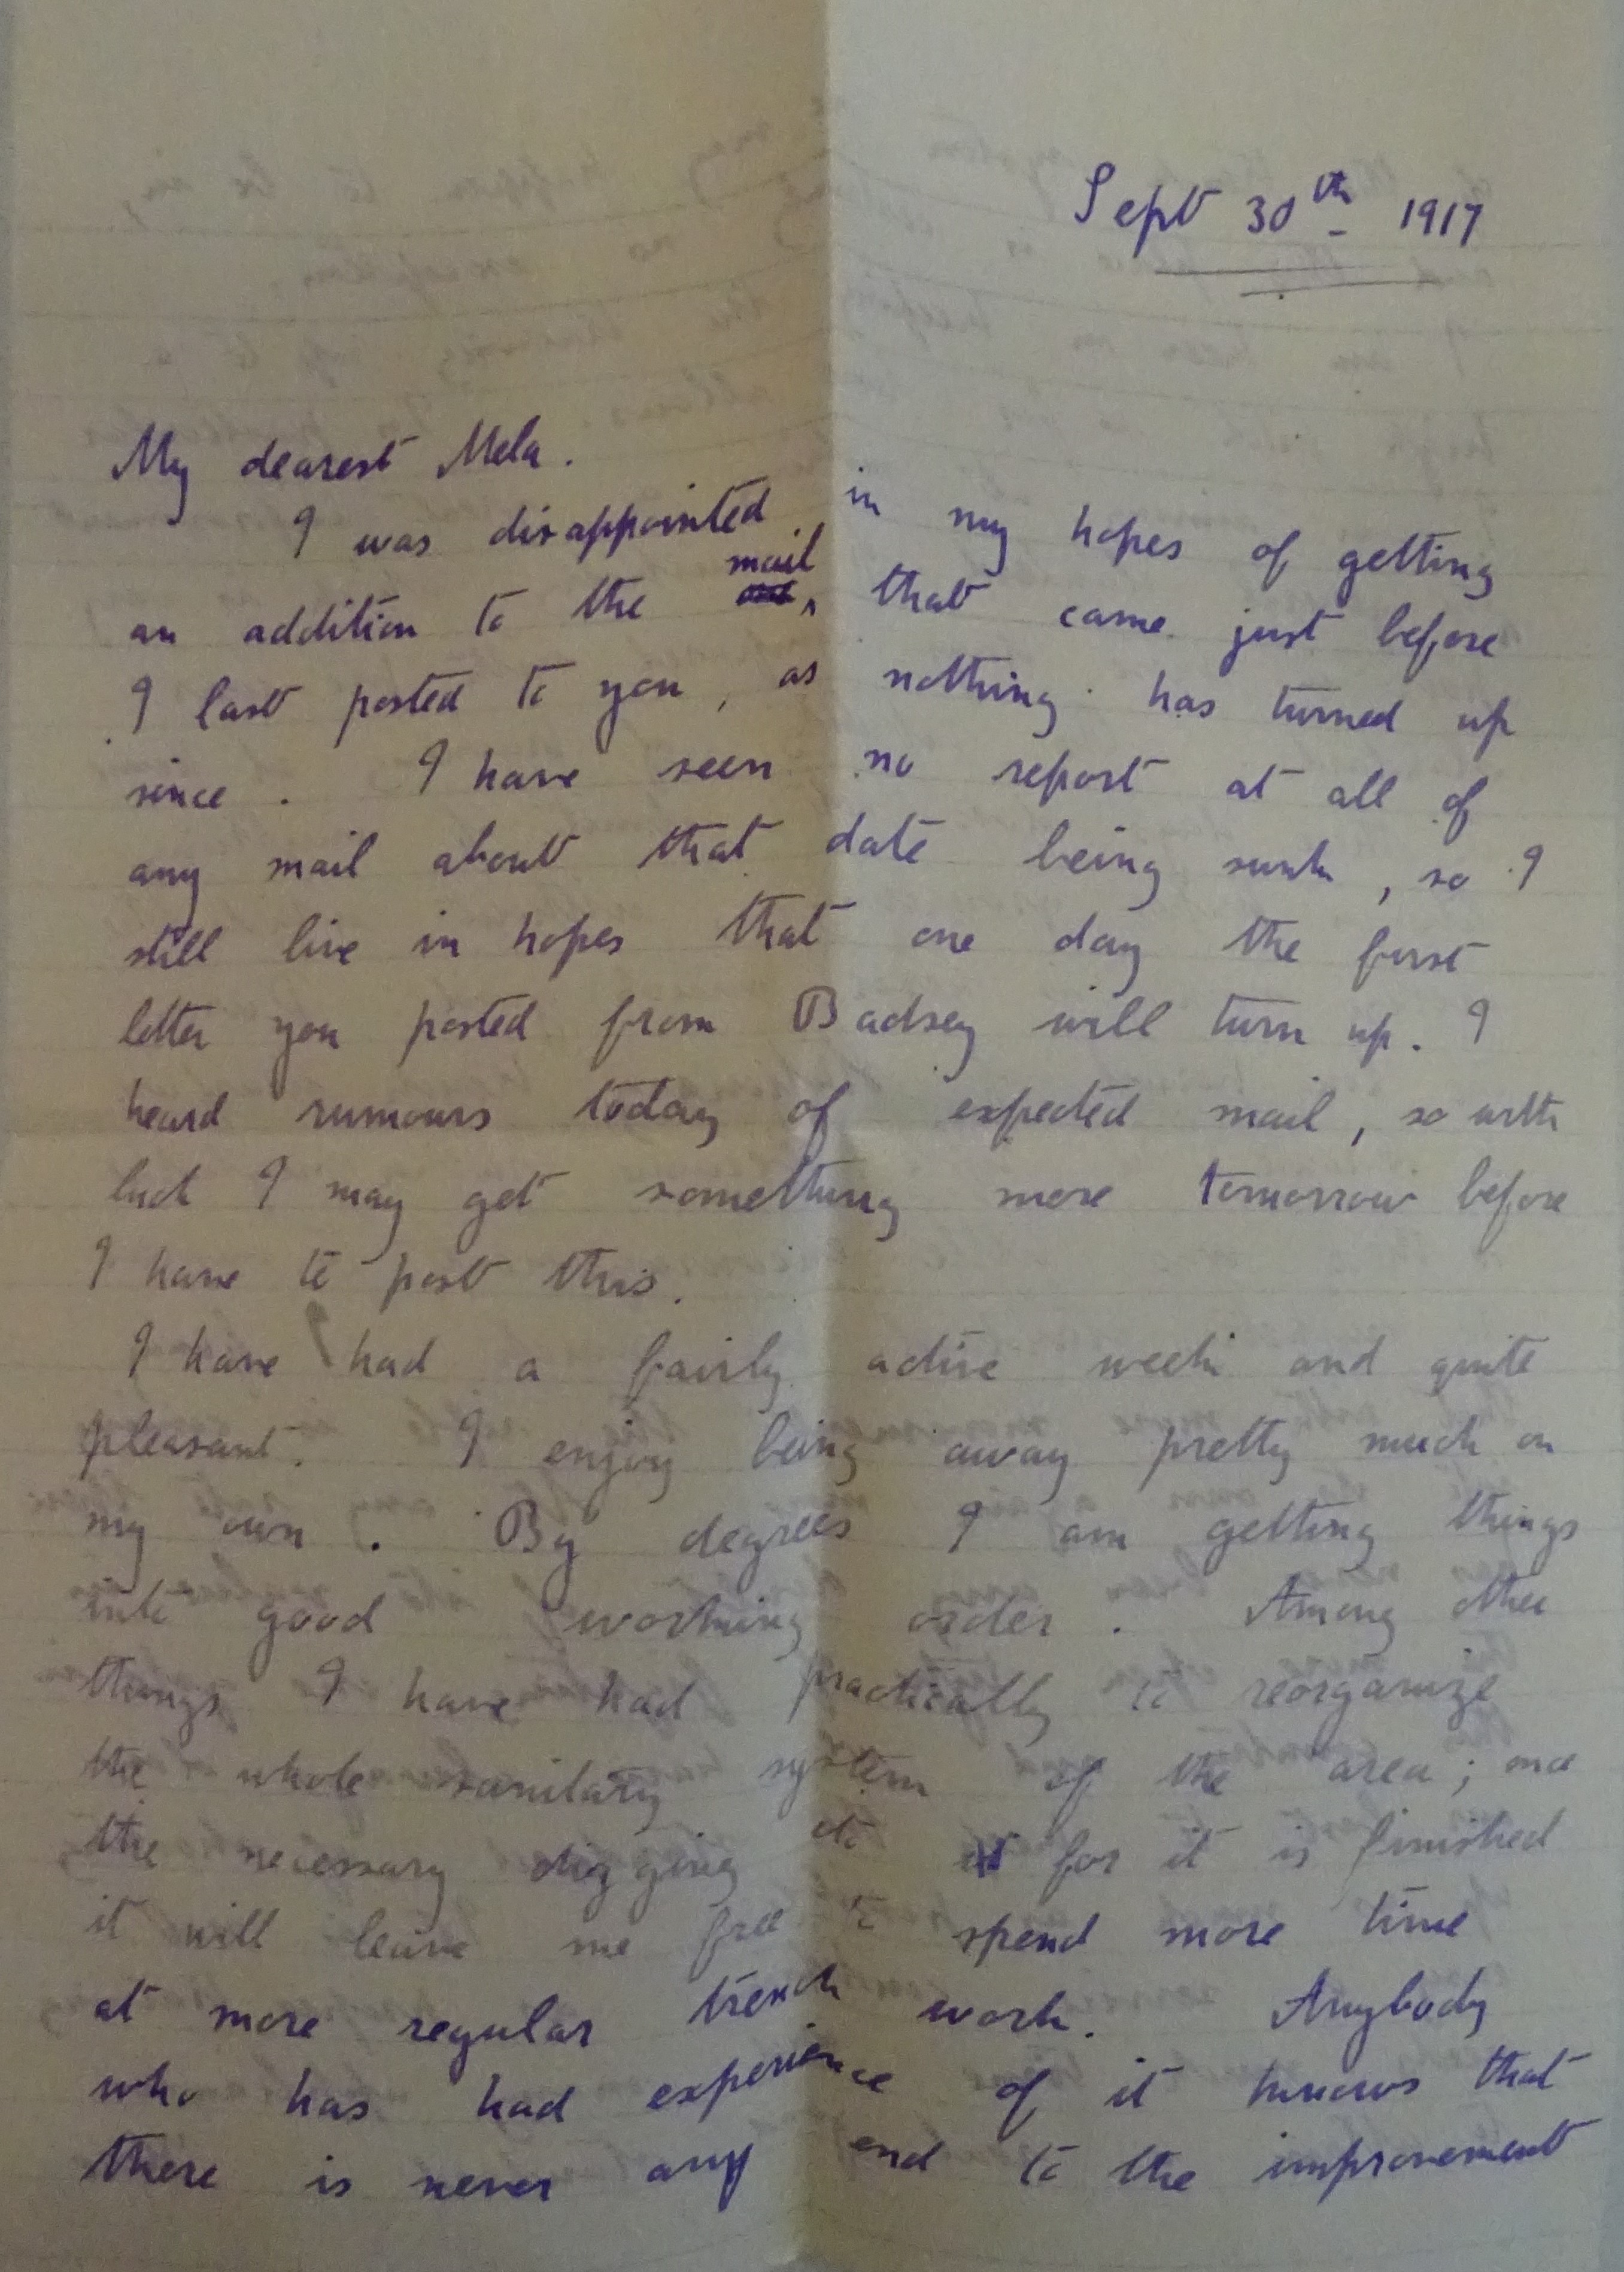 Sept 30th 1917
My dearest Mela.
I was disappointed in my hopes of getting
an addition to the mail, that came just before
I last posted to you, as nothing has turned up
since. I have seen no report at all of
any mail about that date being sunk, so I
still live in hopes that one day the first
letter you posted from Badsey will turn up. I
heard rumours today of expected mail, so with
luck I may get something more tomorrow before
I have to post this.
I have had a fairly active week and quite
pleasant. I enjoy being away pretty much on
my own. By degrees I am getting things
into good working order. Among other
things I have had practically to reorganize
the whole sanitary system of the area; once
the necessary digging etc for it is finished
it will leave me free to spend more time
at more regular trench work. Anybody
who has had experience of it knows that
there is never any end to the improvement